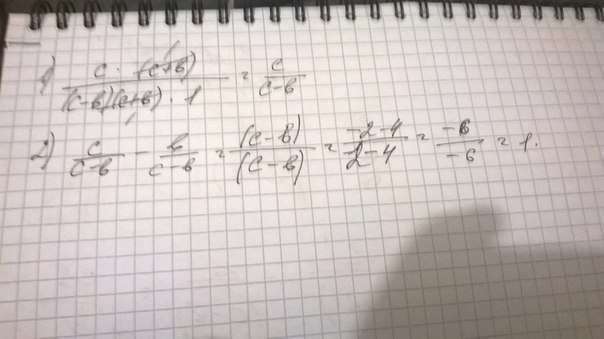 1) (c · (c+b)) / ((c-b)(c+b) · 1) = c / (c-b)
2) c / (c-b) - b / (c-b) = (c-b) / (c-b) = (-2-4) / (2-4) = -6 / -6 = 1.